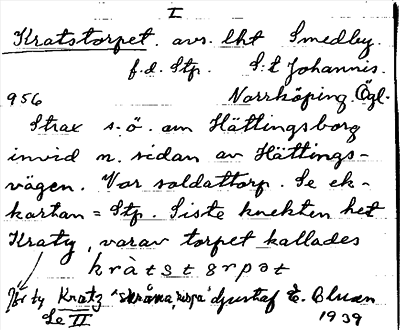 I
Kratstorpet. avs. lht Smedby.
f.d. Stp. S:t Johannis.
956 Norrköping. Ögl.
Strax s.ö. om Hättingsborg
invid n. sidan av Hättings-
vägen. Var soldattorp. Se ek-
kartan = Stp. Siste knekten het
Kraty, varav torpet kallades
kràtstɔrpət
ty Kratz "skråma, rispa" Gustaf E. Olsson
Se II 1939